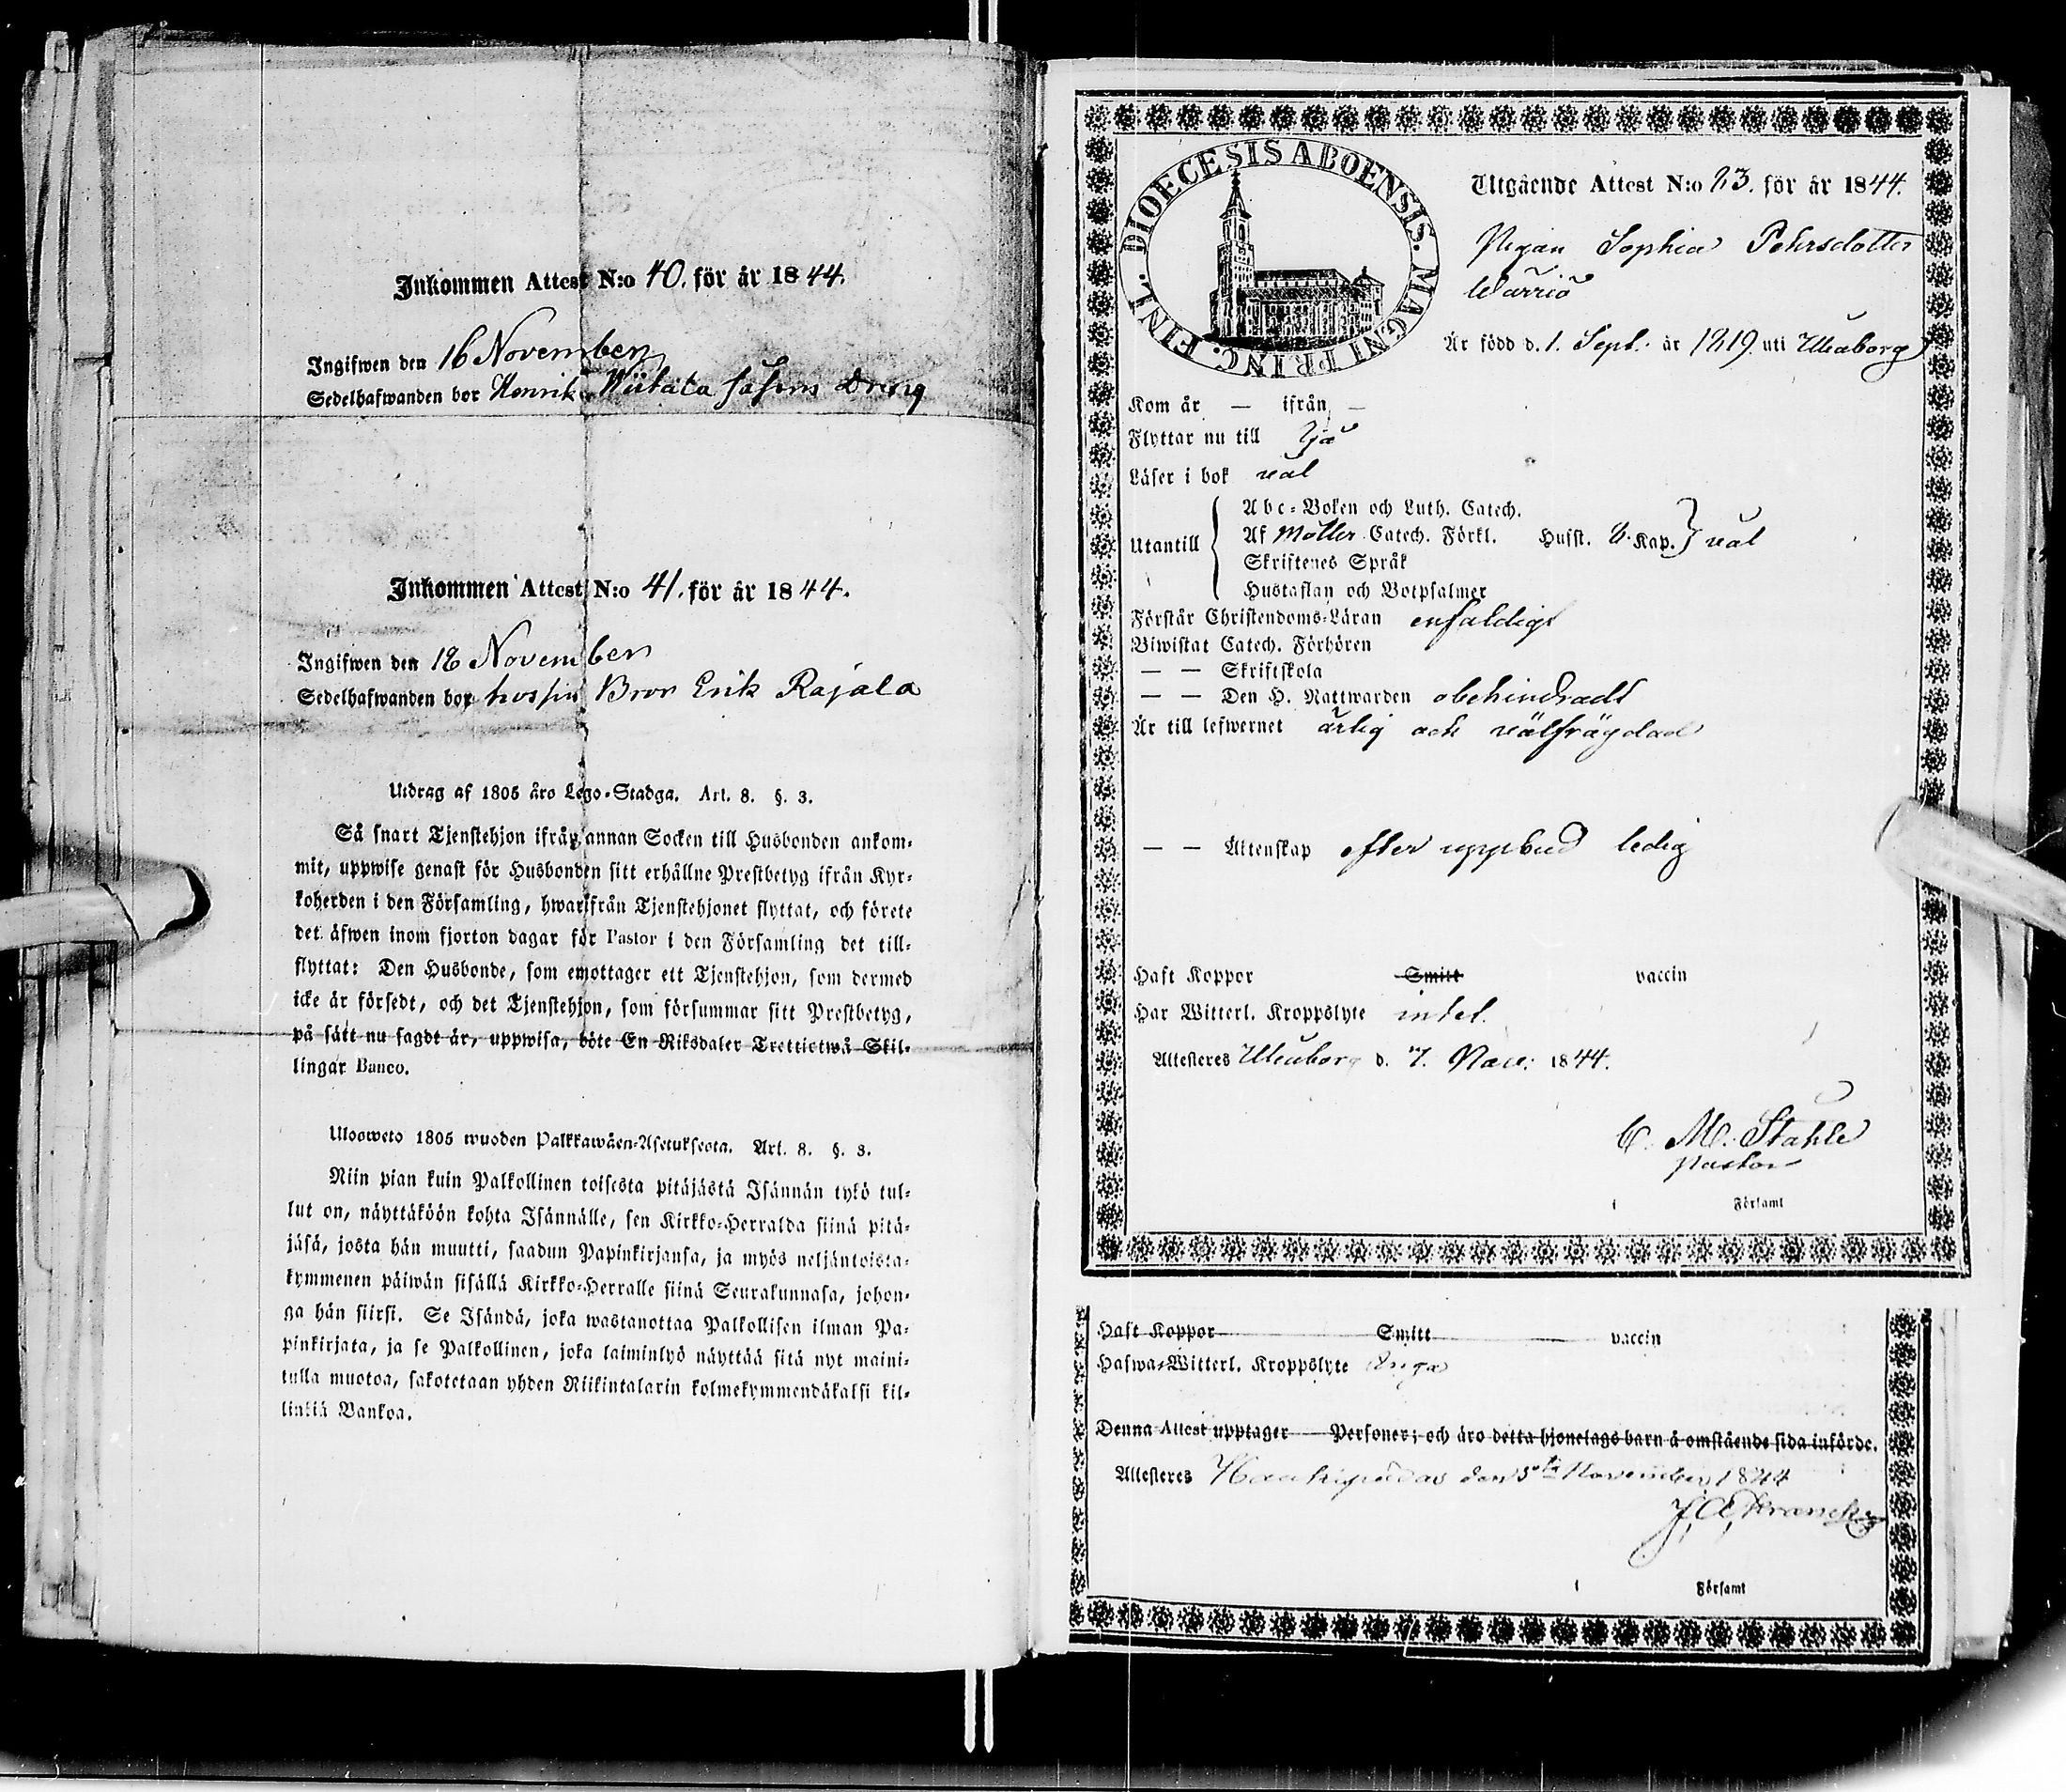 Inkommen Attest N:o 40. för år 1844.
Ingifwen den 16 November
Sedelhafwanden bor Henrik Dreng
Inkommen Attest N:o 41. för år 1844.
Ingifwen den 18 November
Sedelhafwanden bor hos sin Bror Erik Rajala
Utdrag af 1805 åro Lego-Stadga. Art. 8. §. 3.
Så snart Tjenstehjon ifrån annan Socken till Husbonden ankom-
mit, uppwise genast för Husbonden sitt erhållne Prestbetyg ifrån Kyr-
koherden i den Församling, hwarifrån Tjenstehjonet flyttat, och förete
det äfwen inom fjorton dagar för Pastor i den Församling det till-
flyttat: Den Husbonde, som emottager ett Tjenstehjon, som dermed
icke är försedt, och det Tjenstehjon, som försummar sitt Prestbetyg,
på sätt nu sagdt är, uppwisa, böte En Riksdaler Trettiotwå Skil-
lingar Banco.
Ulosweto 1805 wuoden Palkkawäen-Asetuksesta. Art. 8. §. 3.
Niin pian kuin Palkollinen toisesta pitäjästä Isännän tykö tul-
lut on, näyttäköön kohta Isännälle, sen Kirkko-Herralda siinä pitä-
jäsä, josta hän muutti, saadun Papinkirjansa, ja myös neljäntoista-
kymmenen päiwän sisällä Kirkko-Herralle siinä Seurakunnasa, johon-
ga hän siirsi. Se Isändä, joka wastanottaa Palkollisen ilman Pa-
pinkirjata, ja se Palkollinen, joka laiminlyö näyttää sitä nyt maini-
tulla muotoa, sakotetaan yhden Riikintalarin kolmekymmendäkaksi kil-
linkiä Bankoa.
DIOECESIS ABOENSIS. MAGNI PRINC. FINL.
Utgående Attest N:o 23. för år 1844.
Pigan Sophia Pehrsdotter
Warrio
Är född d. 1. Sept. år 1819. uti Uleaborg
Kom år — ifrån —
Flyttar nu till Ijo
Läser i bok väl
Utantill
Abc-Boken och Luth. Catech.
Af Möller Catech. Förkl. Hufst. Kap. väl
Skriftenes Språk
Hustaflan och Botpsalmer
Förstår Christendoms-Läran enfaldigt
Biwistat Catech. Förhören
— — Skriftskola
— — Den H. Nattwarden obehindradt
Är till lefwernet ärlig och välfrägdad
— — Äktenskap efter uppbud ledig
Haft Koppor Smitt vaccin
Har Witterl. Kroppslyte intet.
Attesteres Uleaborg d. 7. Nov: 1844.
C. M. Stahle
Pastor
i Församl
Haft Koppor Smitt vaccin
Hafwa Witterl. Kroppslyte Inga
Denna Attest upptager Personer; och äro detta hjonelags barn å omstående sida införde.
Attesteres Haukipudas den 5te November 1844
J. A. Kranck
i Församl